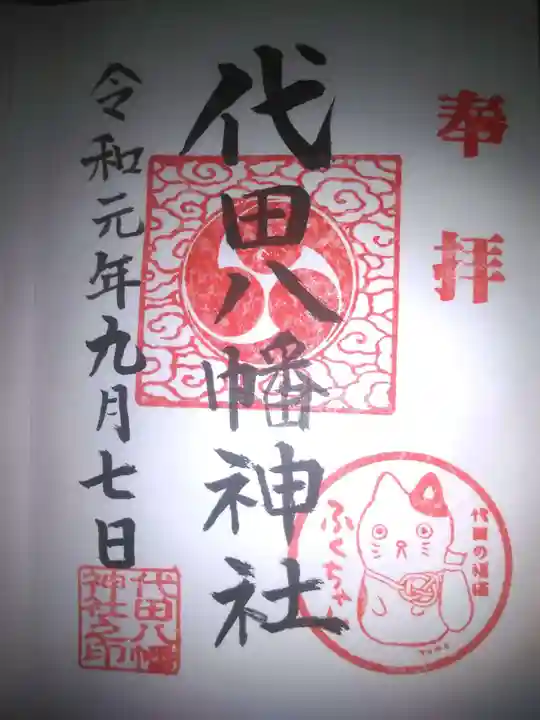 奉拝
代田八幡神社
令和元年九月七日
代田の福猫
ふくちゃん
代田八幡
神社之印